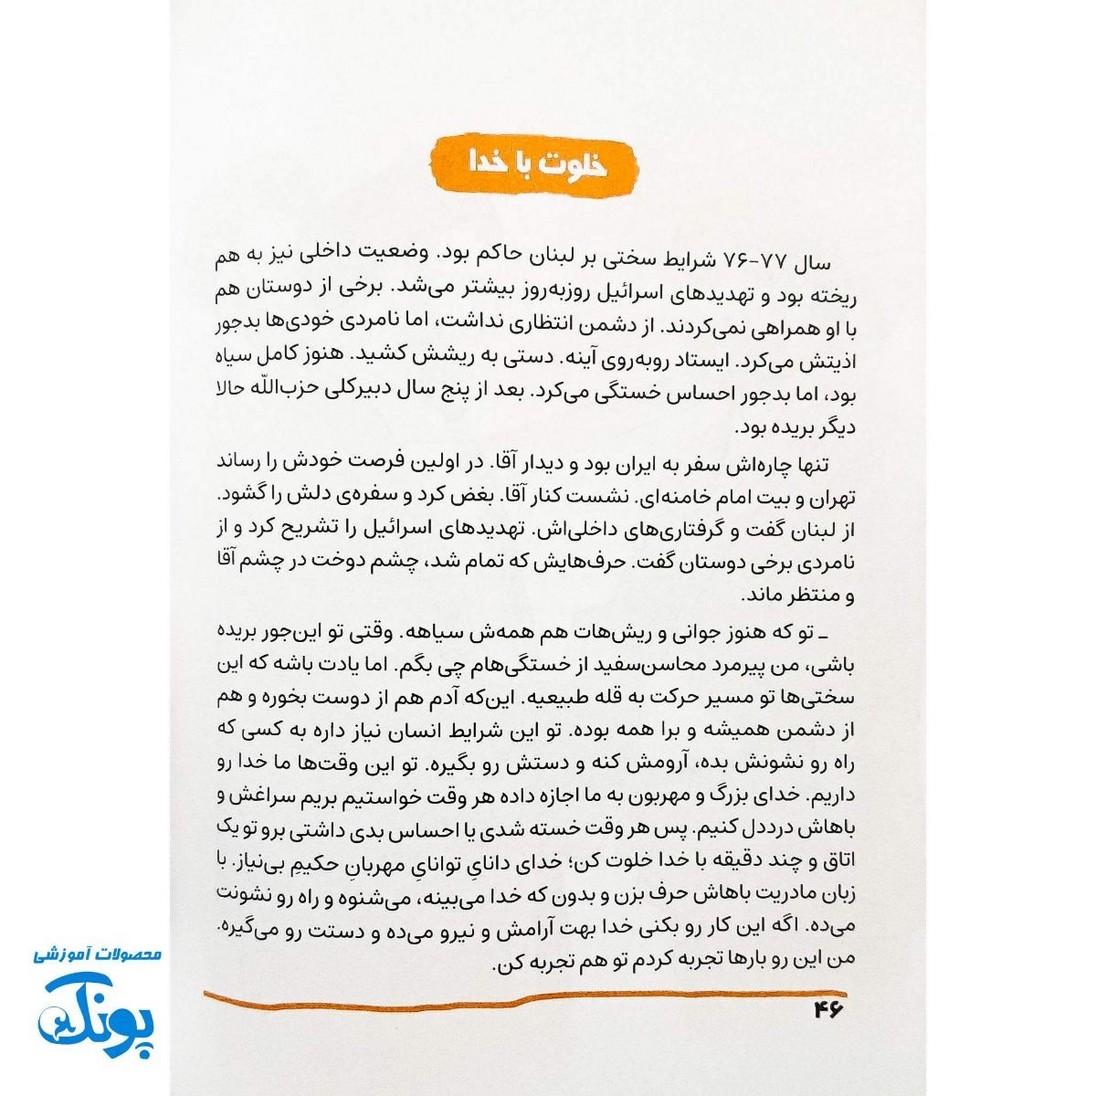 خلوت با خدا
سال ۷۷-۷۶ شرایط سختی بر لبنان حاکم بود. وضعیت داخلی نیز به هم
ریخته بود و تهدیدهای اسرائیل روزبه‌روز بیشتر می‌شد. برخی از دوستان هم
با او همراهی نمی‌کردند. از دشمن انتظاری نداشت، اما نامردی خودی‌ها بدجور
اذیتش می‌کرد. ایستاد روبه‌روی آینه. دستی به ریشش کشید. هنوز کامل سیاه
بود، اما بدجور احساس خستگی می‌کرد. بعد از پنج سال دبیرکلی حزب‌الله حالا
دیگر بریده بود.
تنها چاره‌اش سفر به ایران بود و دیدار آقا. در اولین فرصت خودش را رساند
تهران و بیت امام خامنه‌ای. نشست کنار آقا. بغض کرد و سفره‌ی دلش را گشود.
از لبنان گفت و گرفتاری‌های داخلی‌اش. تهدیدهای اسرائیل را تشریح کرد و از
نامردی برخی دوستان گفت. حرف‌هایش که تمام شد، چشم دوخت در چشم آقا
و منتظر ماند.
ـ تو که هنوز جوانی و ریش‌هات هم همه‌ش سیاهه. وقتی تو این‌جور بریده
باشی، من پیرمرد محاسن‌سفید از خستگی‌هام چی بگم. اما یادت باشه که این
سختی‌ها تو مسیر حرکت به قله طبیعیه. این‌که آدم هم از دوست بخوره و هم
از دشمن همیشه و برا همه بوده. تو این شرایط انسان نیاز داره به کسی که
راه رو نشونش بده، آرومش کنه و دستش رو بگیره. تو این وقت‌ها ما خدا رو
داریم. خدای بزرگ و مهربون به ما اجازه داده هر وقت خواستیم بریم سراغش و
باهاش درددل کنیم. پس هر وقت خسته شدی یا احساس بدی داشتی برو تو یک
اتاق و چند دقیقه با خدا خلوت کن؛ خدای دانایِ توانایِ مهربانِ حکیمِ بی‌نیاز. با
زبان مادریت باهاش حرف بزن و بدون که خدا می‌بینه، می‌شنوه و راه رو نشونت
می‌ده. اگه این کار رو بکنی خدا بهت آرامش و نیرو می‌ده و دستت رو می‌گیره.
من این رو بارها تجربه کردم تو هم تجربه کن.
۴۶
محصولات آموزشی
پونک